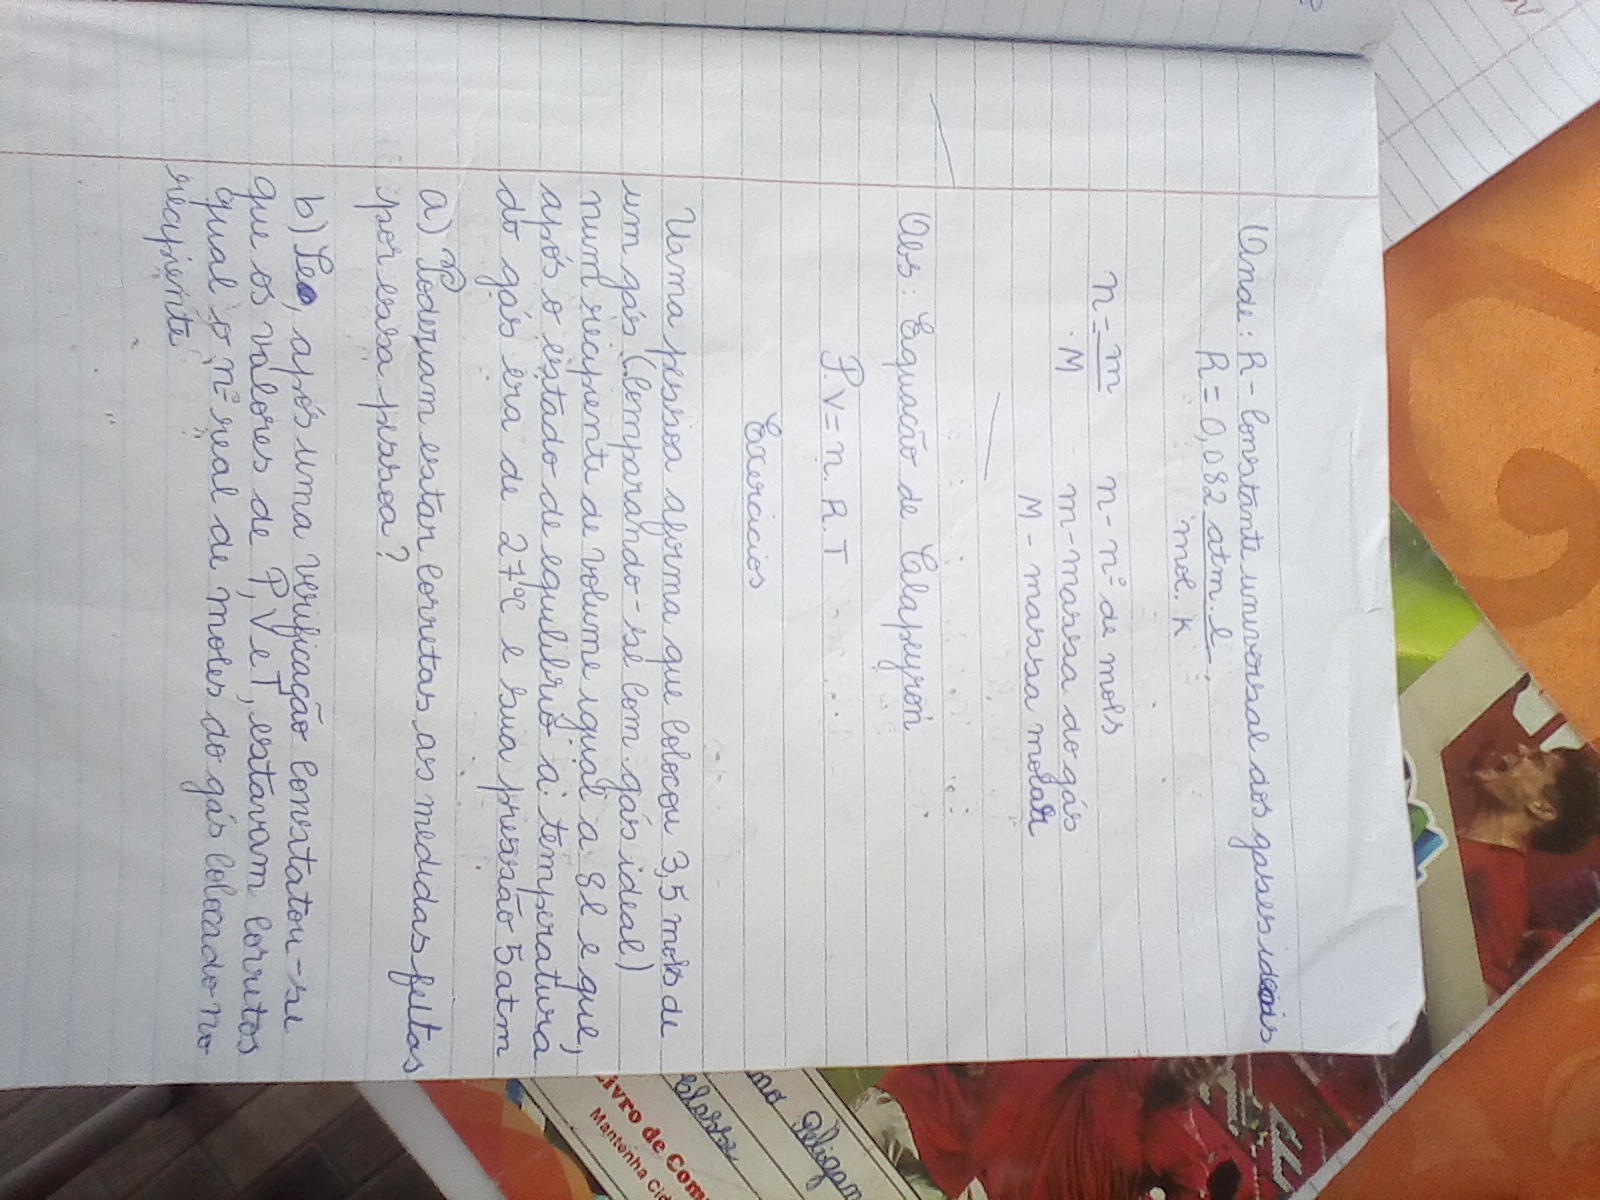 Onde: R - constante universal dos gases ideais
R = 0,082 atm. l
mol. K
n = m
M
n - nº de mols
m - massa do gás
M - massa molar
Obs: Equação de Clapeyron
P.V = n. R. T
Exercicios
Uma pessoa afirma que colocou 3,5 mols de
um gás (comparando-se com gás ideal)
num recipiente de volume igual a 8l e que,
após o estado de equilíbrio a temperatura
do gás era de 27°C e sua pressão 5 atm
a) Poderiam estar corretas as medidas feitas
por essa pessoa?
b) Se, após uma verificação constatou-se
que os valores de P, V e T, estavam corretos
qual o nº real de moles do gás colocado no
recipiente
Livro de Com
Mantenha Cid